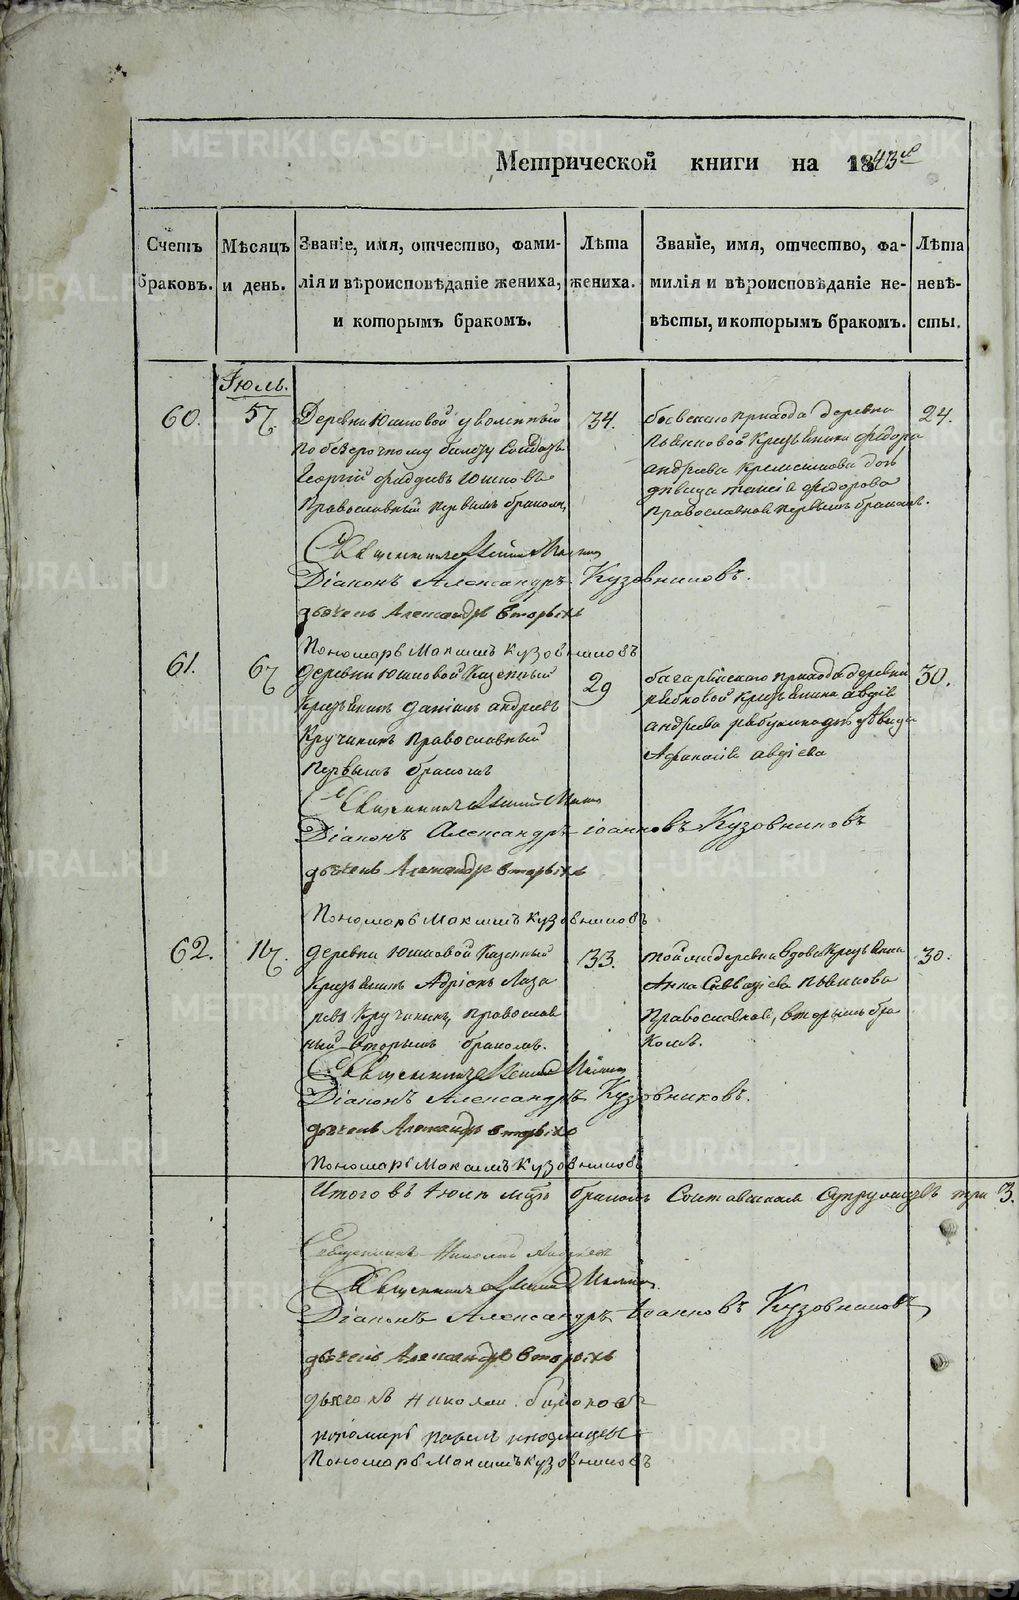 Метрической книги на 1843й
Счетъ браковъ.
Мѣсяцъ и день.
Званіе, имя, отчество, фами-
лія и вѣроисповѣданіе жениха,
и которымъ бракомъ.
Лѣта жениха.
Званіе, имя, отчество, фа-
милія и вѣроисповѣданіе не-
вѣсты, и которымъ бракомъ.
Лѣта невѣ-
сты.
Іюль.
60.
5.
Деревни Юшковой уволенный
по безсрочному билету Солдатъ
Георгій Юшковъ
Православный первымъ бракомъ,
34.
прихода деревни
Крестьянина Федора
андреева дочь
дѣвица Федорова
Православная первымъ бракомъ.
24.
Священникъ
Діаконъ Александръ Кузовниковъ.
дьячекъ Александръ Вторыхъ
Пономарь Максимъ Кузовниковъ
61.
6
деревни Юшковой Казенный
Крестьянинъ Даніилъ андреевъ
Кручининъ Православный
Первымъ бракомъ
29
багарякскаго прихода деревни
крестьянина авдія
андреева дѣвица
авдіева
30.
Священникъ
Діаконъ Александръ Іоанновъ Кузовниковъ
дьячекъ Александръ Вторыхъ
Пономарь Максимъ Кузовниковъ
62.
11.
деревни Юшковой Казенный
Крестьянинъ Адріанъ Лаза
ревъ Кручининъ, Православ
ный вторымъ бракомъ.
33.
той же деревни вдова Крестьянка
Анна
Православная, вторымъ бра
комъ.
30.
Священникъ
Діаконъ Александръ Кузовниковъ.
дьячекъ Александръ Вторыхъ
Пономарь Максимъ Кузовниковъ
Итого въ Іюлѣ мцѣ бракомъ Сочетавшихся Супружествъ три 3.
Священникъ Николай
Священникъ
Діаконъ Александръ Іоанновъ Кузовниковъ
дьячекъ Александръ Вторыхъ
дьячекъ Николай
пономарь Павелъ
Пономарь Максимъ Кузовниковъ
METRIKI.GASO-URAL.RU